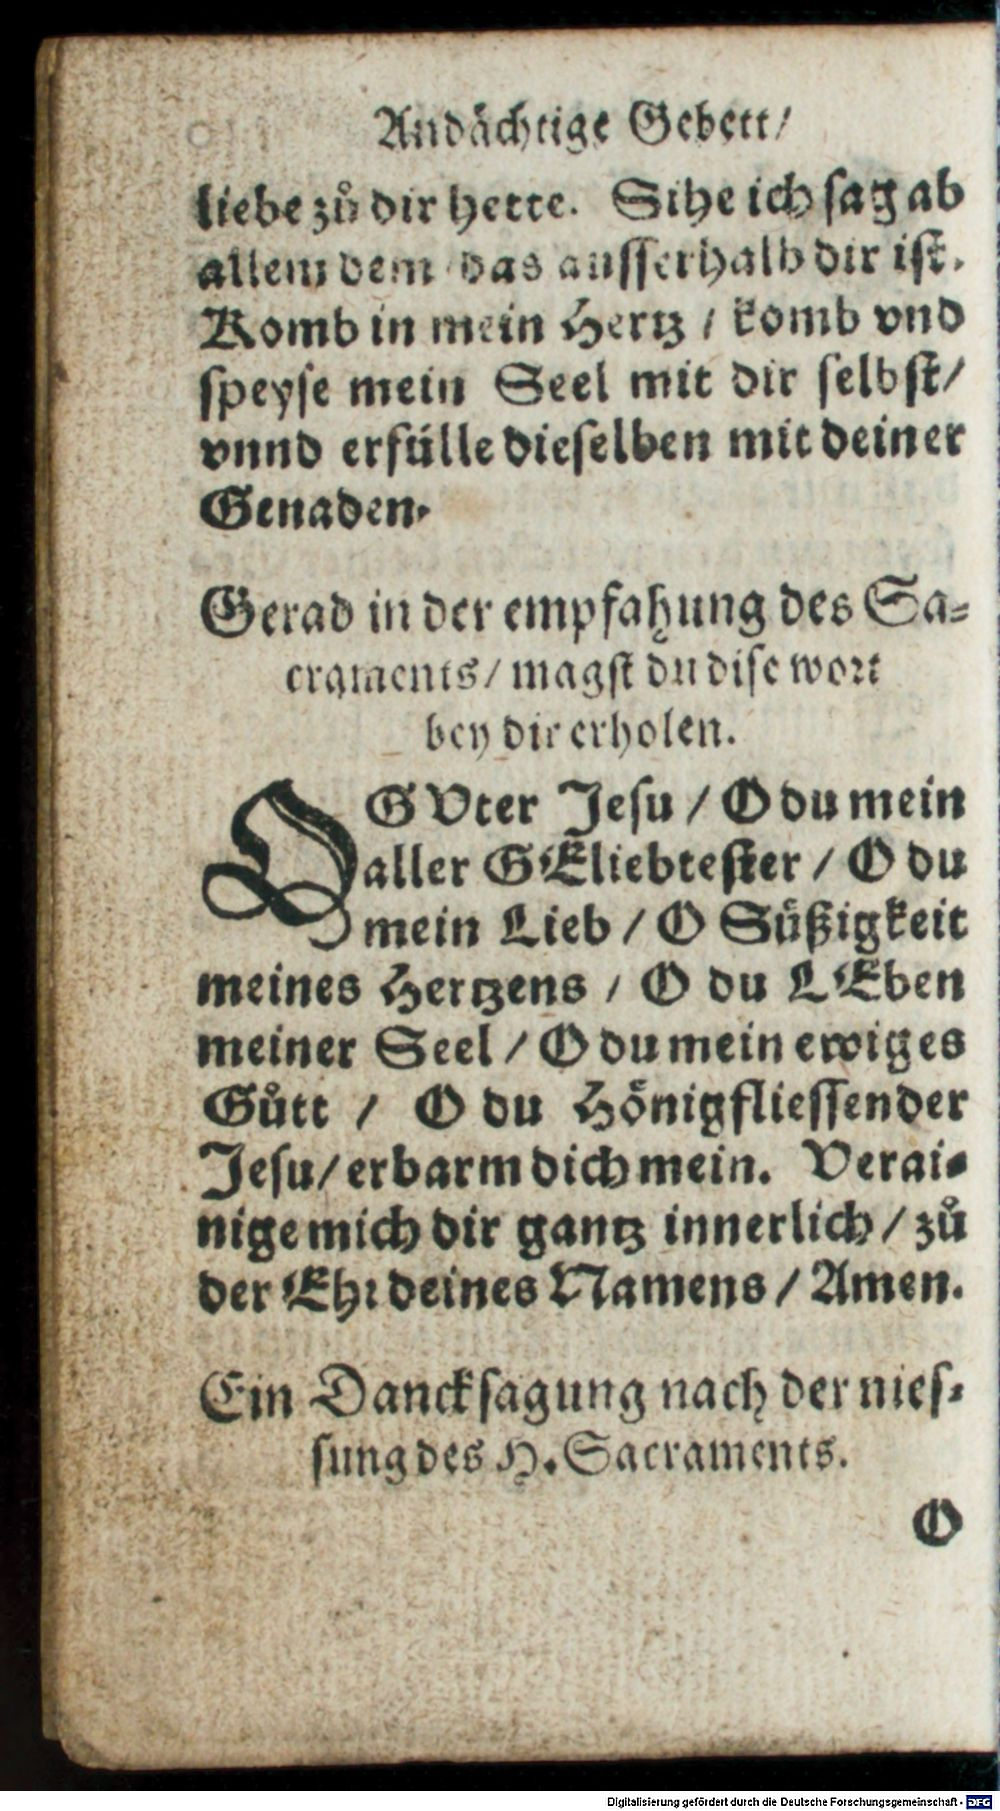 Andächtige Gebett/
liebe zů dir hette. Sihe ich sag ab
allem dem das ausserhalb dir ist.
Komb in mein Hertz / komb vnd
speyse mein Seel mit dir selbst/
vnnd erfülle dieselben mit deiner
Genaden.
Gerad in der empfahung des Sa-
craments/ magst du dise wort
bey dir erholen.
O GVter Jesu / O du mein
aller GEliebtester / O du
mein Lieb / O Süßigkeit
meines Hertzens / O du LEben
meiner Seel / O du mein ewiges
Gůtt / O du Hönigfliessender
Jesu/ erbarm dich mein. Verai-
nige mich dir gantz innerlich / zů
der Ehr deines Namens / Amen.
Ein Dancksagung nach der nies-
sung des H. Sacraments.
O
Digitalisierung gefördert durch die Deutsche Forschungsgemeinschaft - DFG